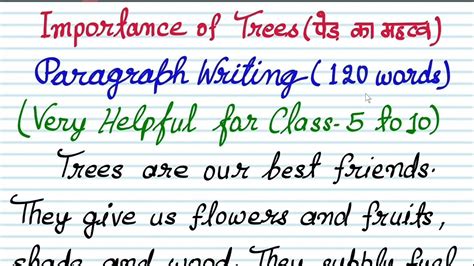 Importance of Trees (पेड़ का महत्व)
Paragraph Writing (120 words)
(Very Helpful for Class-5 to 10)
Trees are our best friends.
They give us flowers and fruits,
shade and wood. They supply fuel